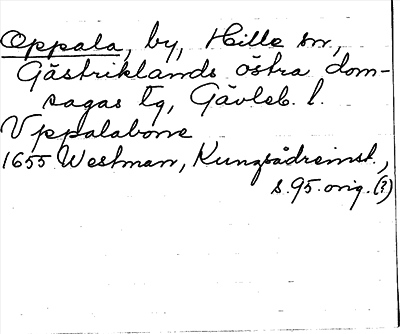 Oppala, by, Hille sn,
Gästriklands östra dom-
sagas tg, Gävleb. l.
Vppalabone
1655 Westman, Kungsådreinst.,
s. 95. orig. (?)